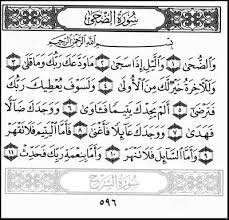 سُورَةُ الضُّحَىٰ
بِسْمِ ٱللَّهِ ٱلرَّحْمَٰنِ ٱلرَّحِيمِ
وَٱلضُّحَىٰ ١ وَٱلَّيْلِ إِذَا سَجَىٰ ٢ مَا وَدَّعَكَ رَبُّكَ وَمَا قَلَىٰ ٣
وَلَلْءَاخِرَةُ خَيْرٌ لَّكَ مِنَ ٱلْأُولَىٰ ٤ وَلَسَوْفَ يُعْطِيكَ رَبُّكَ
فَتَرْضَىٰٓ ٥ أَلَمْ يَجِدْكَ يَتِيمًا فَـَٔاوَىٰ ٦ وَوَجَدَكَ ضَآلًّا
فَهَدَىٰ ٧ وَوَجَدَكَ عَآئِلًا فَأَغْنَىٰ ٨ فَأَمَّا ٱلْيَتِيمَ فَلَا تَقْهَرْ
٩ وَأَمَّا ٱلسَّآئِلَ فَلَا تَنْهَرْ ١٠ وَأَمَّا بِنِعْمَةِ رَبِّكَ فَحَدِّثْ ١١
سُورَةُ الشَّرْحِ
٥٩٦